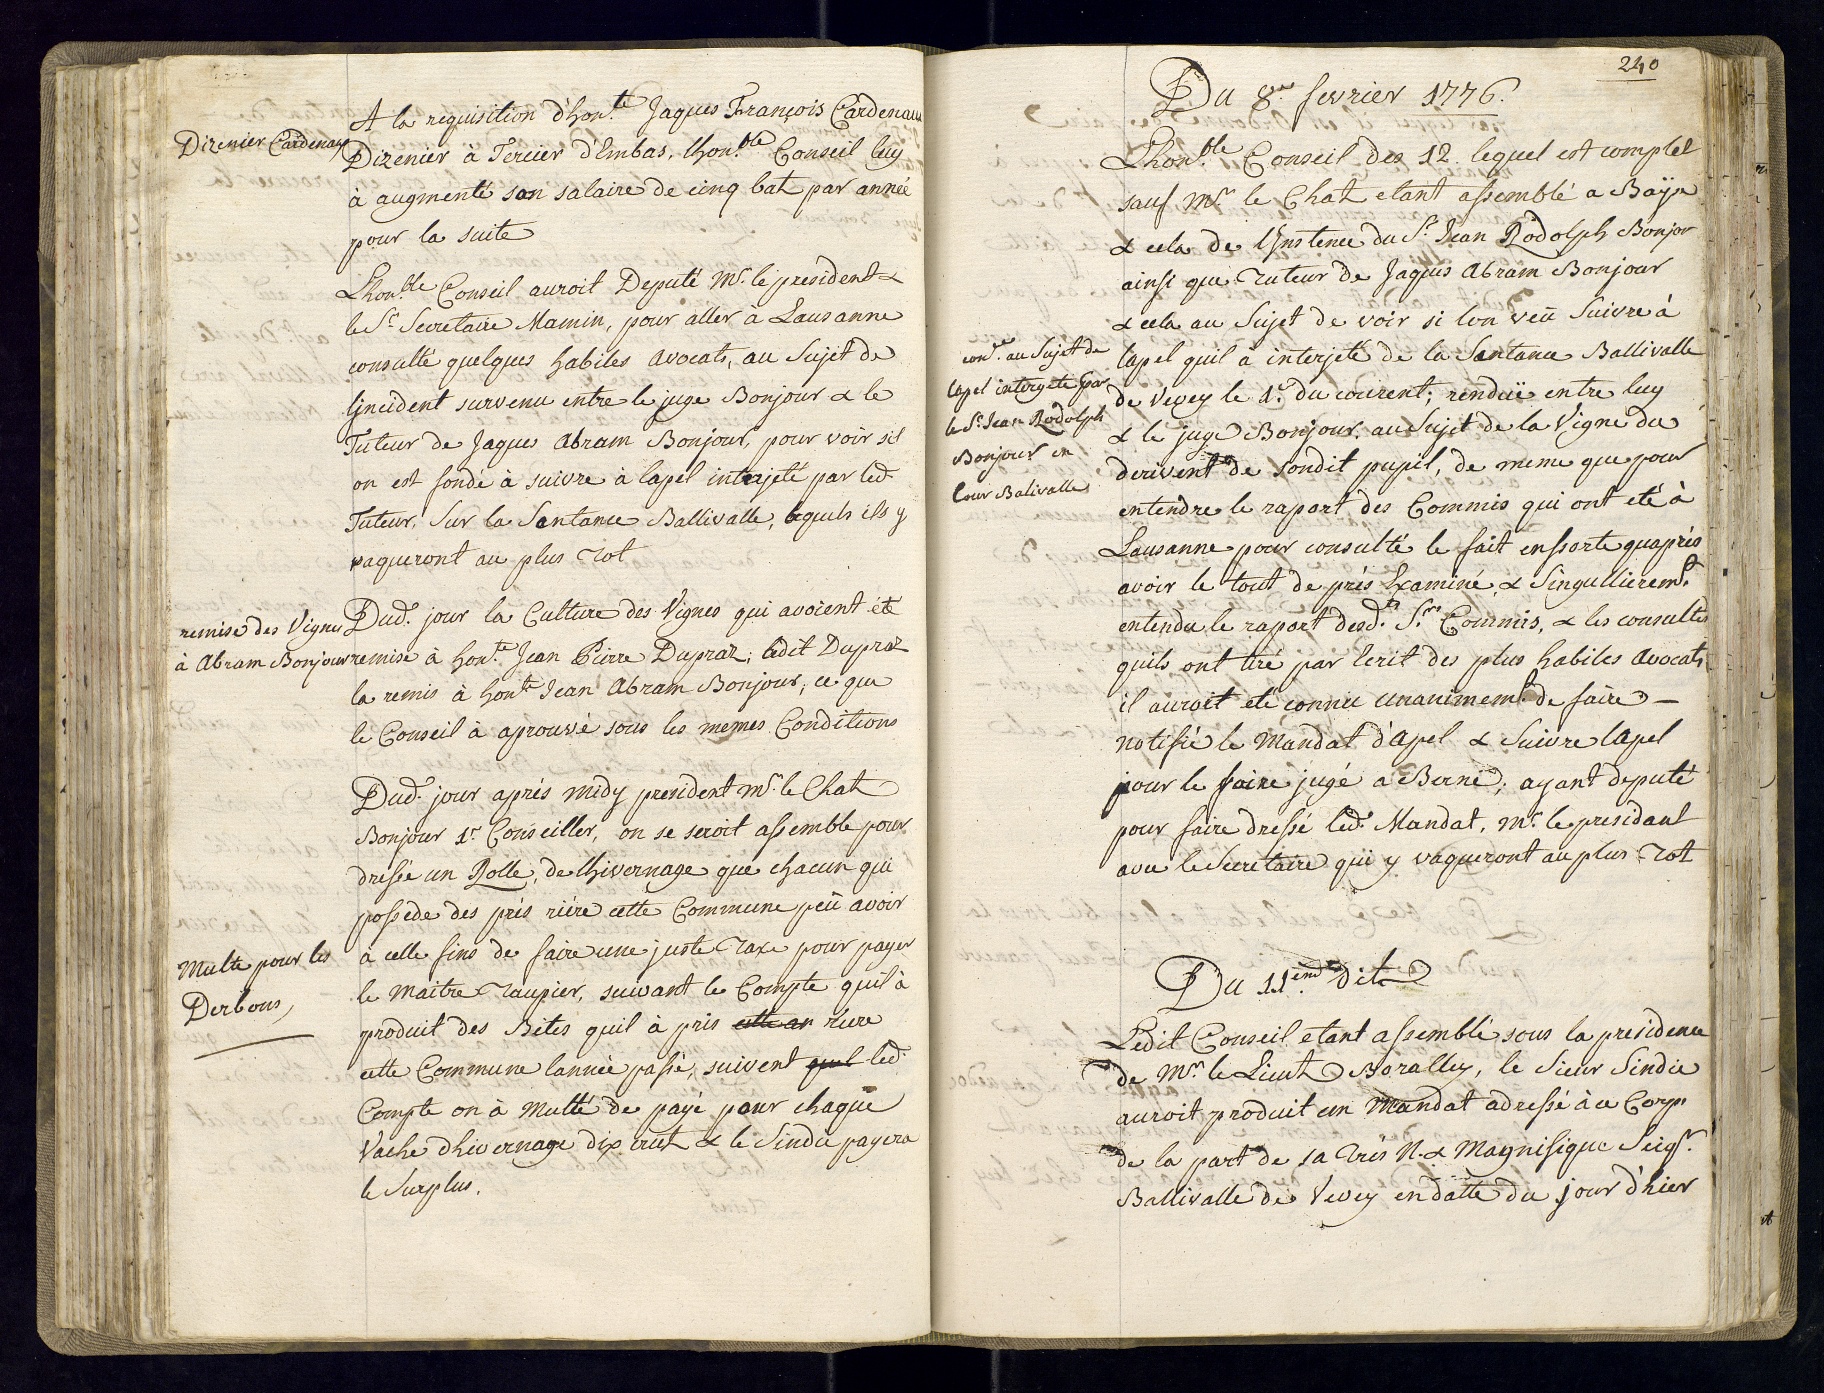 Dizenier Cardenaux
A la requisition d'hon.te Jaques François Cardenaux
Dizenier à Tercier d'Embas, lhon.ble Conseil luy
à augmenté son salaire de cinq batz par année
pour la suite
Lhon.ble Conseil auroit Deputé Mr. le president &
le Sr. Secretaire Mamin, pour aller à Lausanne
consulté quelques habiles avocats, au sujet de
l'jncident survenu entre le juge Bonjour & le
Tuteur de Jaques Abram Bonjour, pour voir sil
on est fondé à suivre à lapel interjetté par led.
Tuteur, Sur la Santance Ballivalle, lequels ils y
vaqueront au plus Tot
remise des Vignes
à Abram Bonjour
Dud. jour la Culture des Vignes qui avoient été
remise à hon.te Jean Pierre Dupraz; ledit Dupraz
la remis à hon.te Jean Abram Bonjour; ce que
le Conseil à aprouvé sous les memes Conditions
Dud. jour aprés midy president mr. le Chat.
Bonjour 1r Conseiller, on se seroit assemble pour
dressé un Rolle, de lhivernage que chacun qui
possede des prés riére cette Commune peü avoir
à celle fins de faire une juste Taxe pour payer
Multe pour les
Derbons,
le Maitre Taupier, suivant le Compte quil à
produit des Bêtes quil à pris cette an riere
cette Commune lannée passé, suivent quil led.
Compte on à Multé de payé pour chaque
Vache dhivernage dix crut & le Sindic payera
le Surplus.
240
Du 8.me fevrier 1776.
Lhon.ble Conseil des 12. lequel est complet
sauf Mr. le Chat. etant assemblé a Baÿe
& cela de l'Instence du Sr. Jean Rodolph Bonjor
ainsi que Tuteur de Jaques Abram Bonjour
& cela au Sujet de voir si lon veü Suivre à
con.e au Sujet de
lapel intergeté par
le Sr. Jean Rodolph
Bonjour en
Cour Balivalle
lapel quil à interjeté de la Santance Ballivalle
de Vevey le 1.r du courent; renduë entre luy
& le juge Bonjour. au Sujet de la Vigne du
derivent de sondit pupil, de meme que pour
entendre le raport des Commis qui ont eté à
Lausanne pour consulté le fait enssorte quaprés
avoir le tout de prés Examiné, & Singullierem.t
entendu le raport desd.ts S.rs Commis, & les consultes
quils ont tiré par Ecrit des plus habiles Avocats
il auroit eté connu unanimem.t de faire —
notifié le Mandat d'apel & Suivre lapel
pour le faire jugé a Berne; ayant deputé
pour faire dressé led. Mandat, Mr. le president
avec le Secretaire qui y vaqueront au plus Tot
Du 11.eme dit
Ledit Conseil etant assemblé sous la presidence
de Mr. le Lieut. Boralley, le Sieur Sindic
auroit produit un Mandat adressé à ce Corps
de la part de sa Trés N. & Magnifique Seigr.
Ballivalle de Vevey en datte du jour d'hier